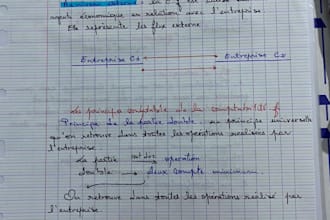 la C.F est
agents économique en relation avec l'entreprise
Elle représente les flux externe
Entreprise Entreprise
Le principe comptable de la comptabilité f
Principe de la partie double, un principe universelle
qu'on retrouve dans toutes les opérations réalisées par
l'entreprise.
La partie → opération
double → deux compte minimum.
On retrouve dans toutes les opérations réalisé par
l'entreprise